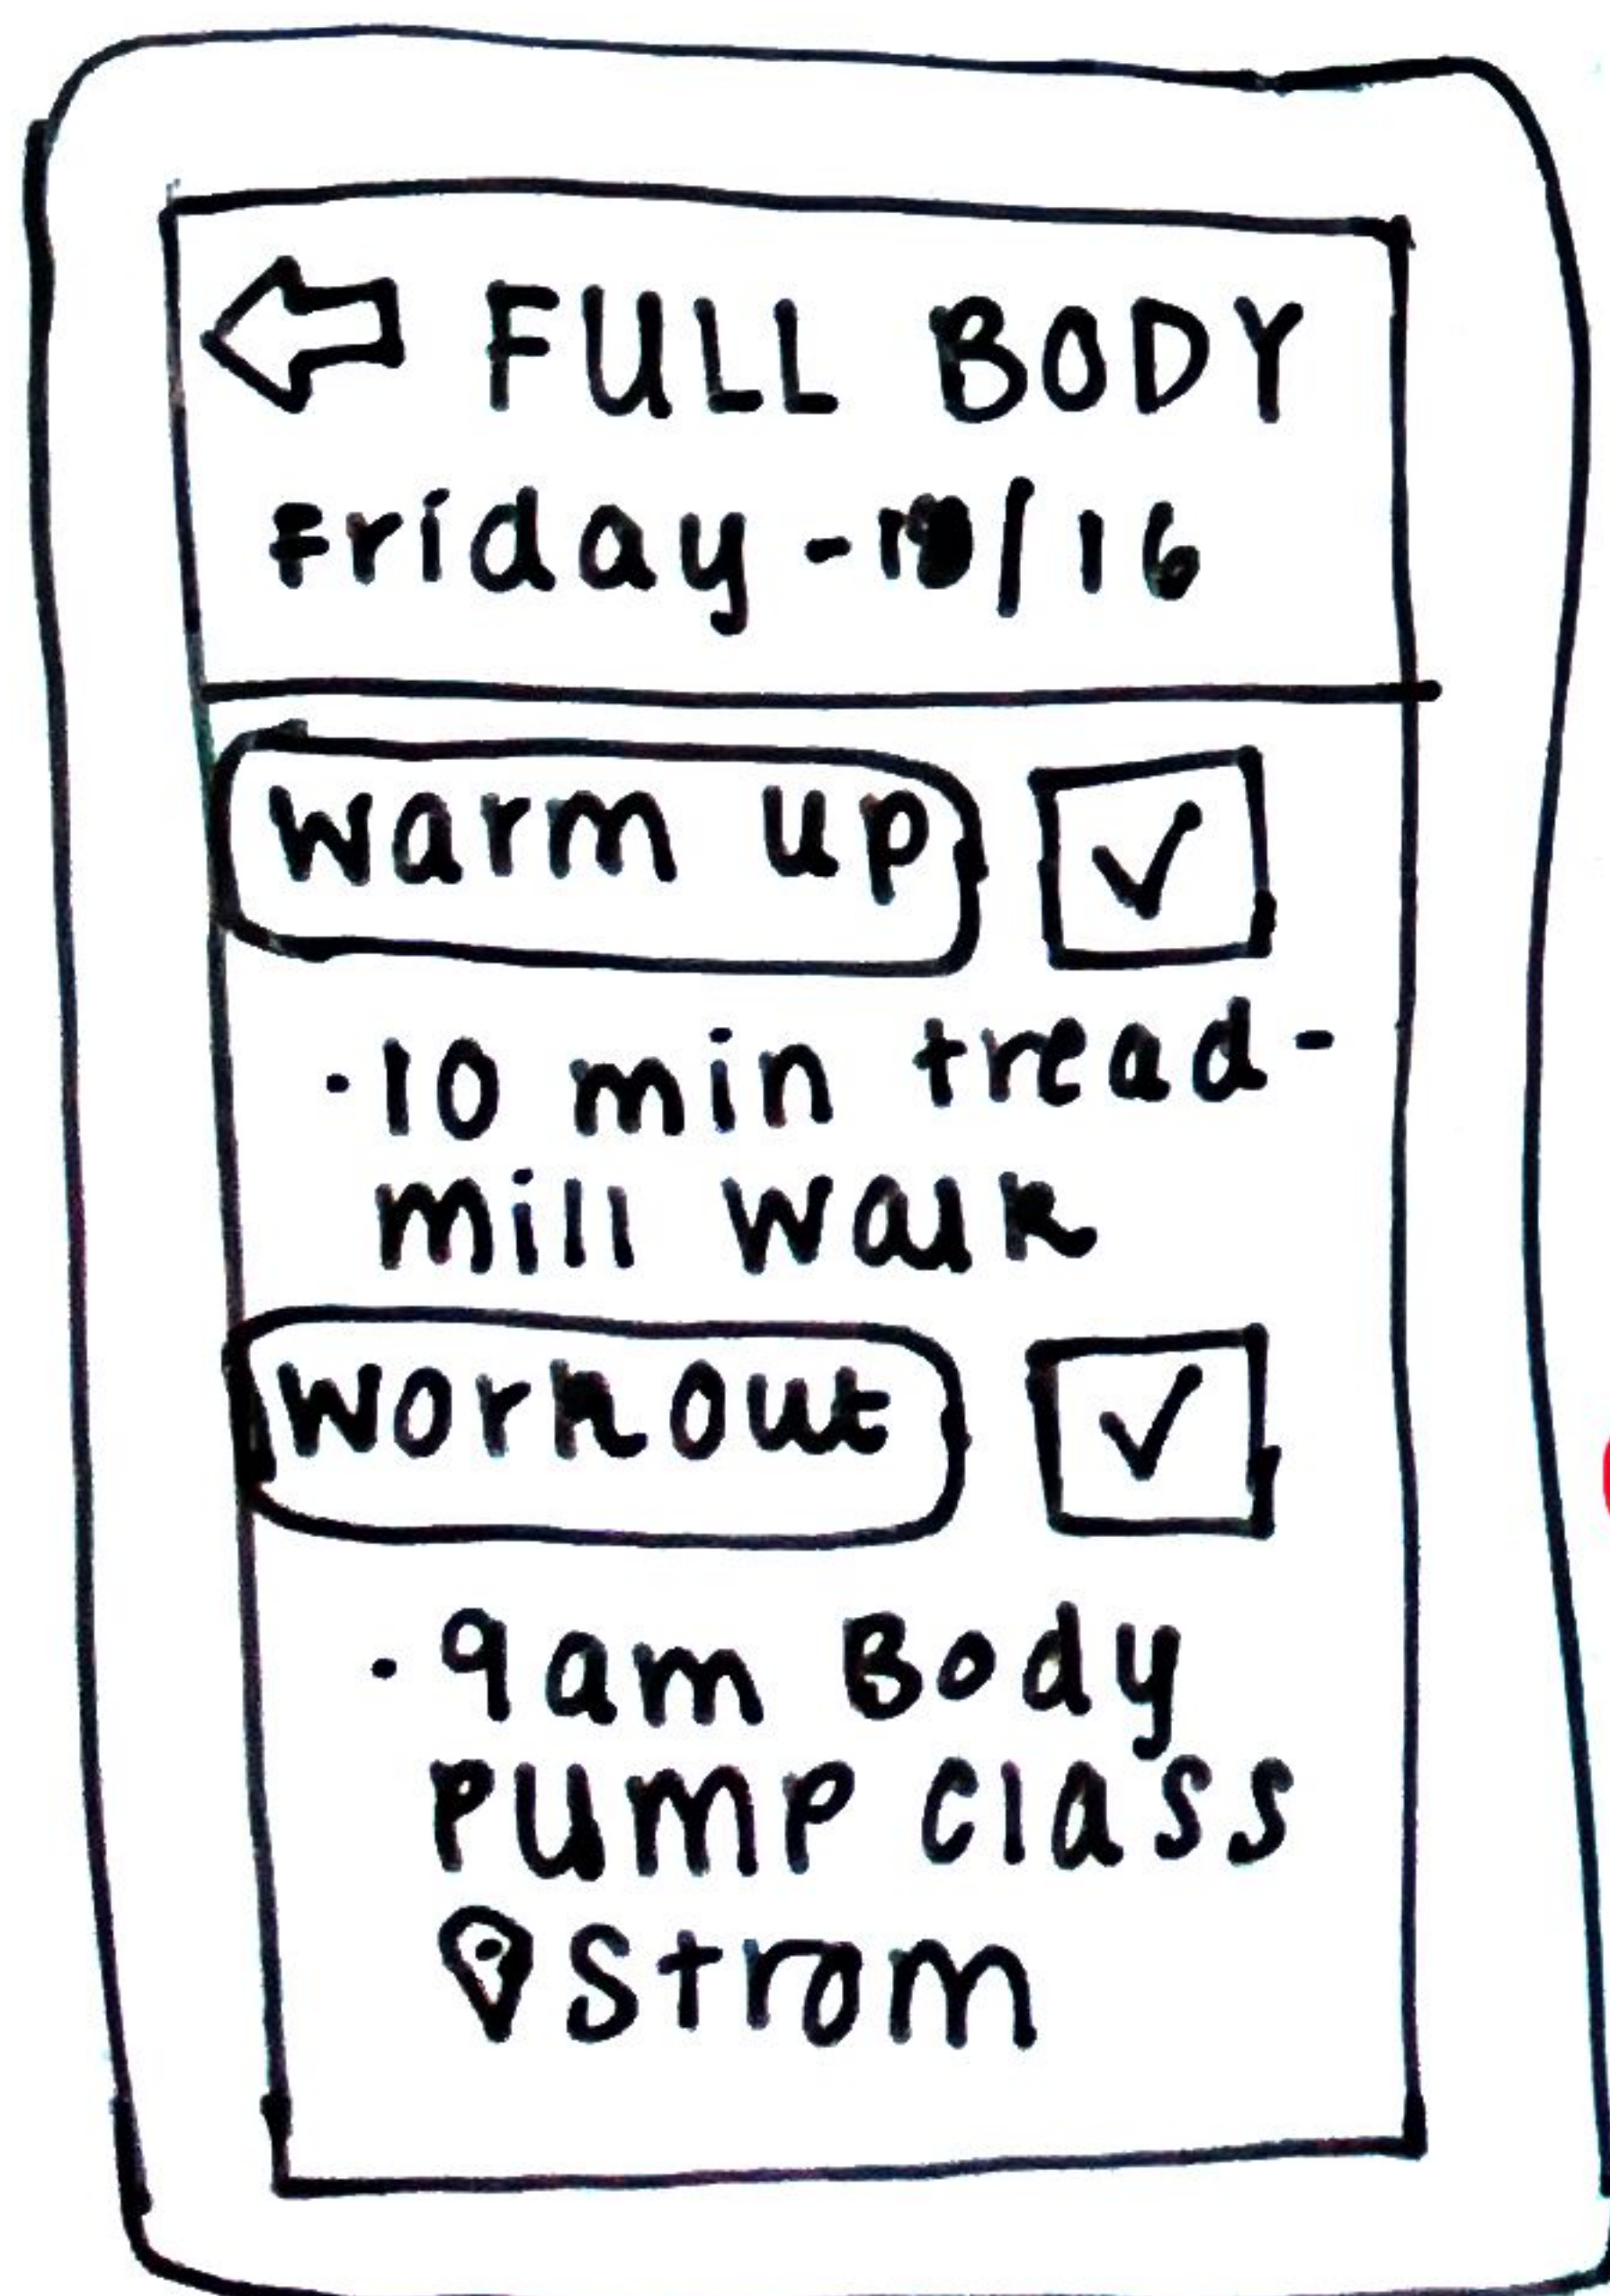 FULL BODY
Friday - 10/16
warm up
· 10 min tread-
mill walk
workout
· 9am Body
Pump class
Strom